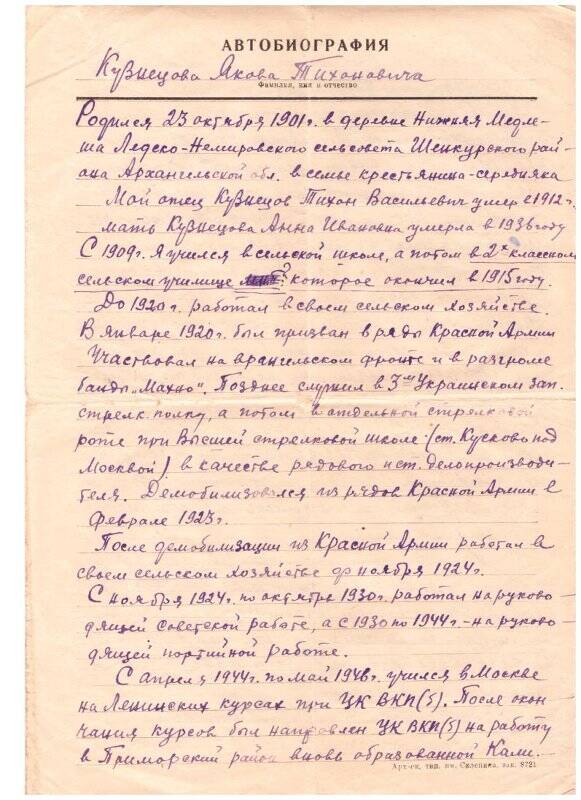 АВТОБИОГРАФИЯ
Кузнецова Якова Тихоновича
Фамилия, имя и отчество
Родился 23 октября 1901г. в деревне Нижняя Медле-
ша Ледско-Немировского сельсовета Шенкурского рай-
она Архангельской обл. в семье крестьянина-середняка
Мой отец Кузнецов Тихон Васильевич умер в 1912г.
мать Кузнецова Анна Ивановна умерла в 1936 году
С 1909г. я учился в сельской школе, а потом в 2х классном
сельском училище которое окончил в 1915 году.
До 1920г. работал в своем сельском хозяйстве.
В январе 1920г. был призван в ряды Красной Армии
Участвовал на врангельском фронте и в разгроме
банды „Махно". Позднее служил в 3м Украинском зап.
стрелк. полку, а потом в отдельной стрелковой
роте при Высшей стрелковой школе (ст. Кусково под
Москвой) в качестве рядового и ст. делопроизводи-
теля. Демобилизовался из рядов Красной Армии в
феврале 1923г.
После демобилизации из Красной Армии работал в
своем сельском хозяйстве до ноября 1924г.
С ноября 1924г. по октябрь 1930г. работал на руково-
дящей советской работе, а с 1930 по 1944г. - на руково-
дящей партийной работе.
С апреля 1944г. по май 1946г. учился в Москве
на Ленинских курсах при ЦК ВКП(б). После окон
чания курсов был направлен ЦК ВКП(б) на работу
в Приморский район вновь образованной Кали.-
Арх-ск, тип. им. Склепина, зак. 8721